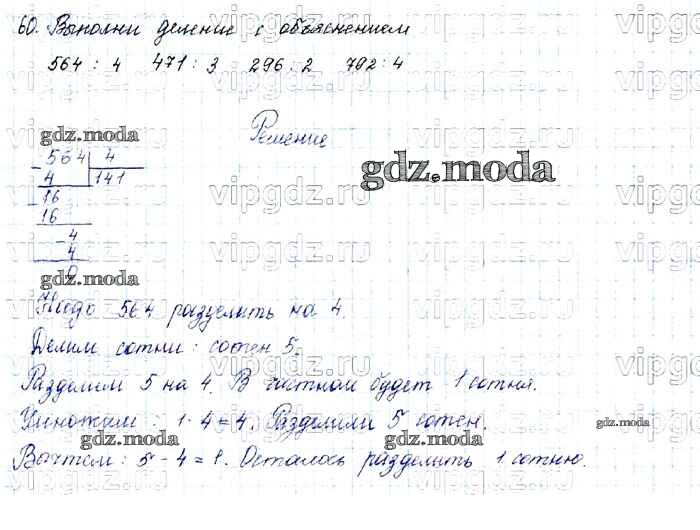 60. Выполни деление с объяснением
564 : 4 471 : 3 296 : 2 792 : 4
Решение
gdz.moda
gdz.moda
- 564 | 4
4 141
- 16
16
- 4
4
0
gdz.moda
Надо 564 разделить на 4.
Делим сотни: сотен 5.
Разделим 5 на 4. В частном будет 1 сотня.
Умножим : 1 · 4 = 4. Разделили 5 сотен.
gdz.moda gdz.moda gdz.moda
Вычтем : 5 - 4 = 1. Осталось разделить 1 сотню.